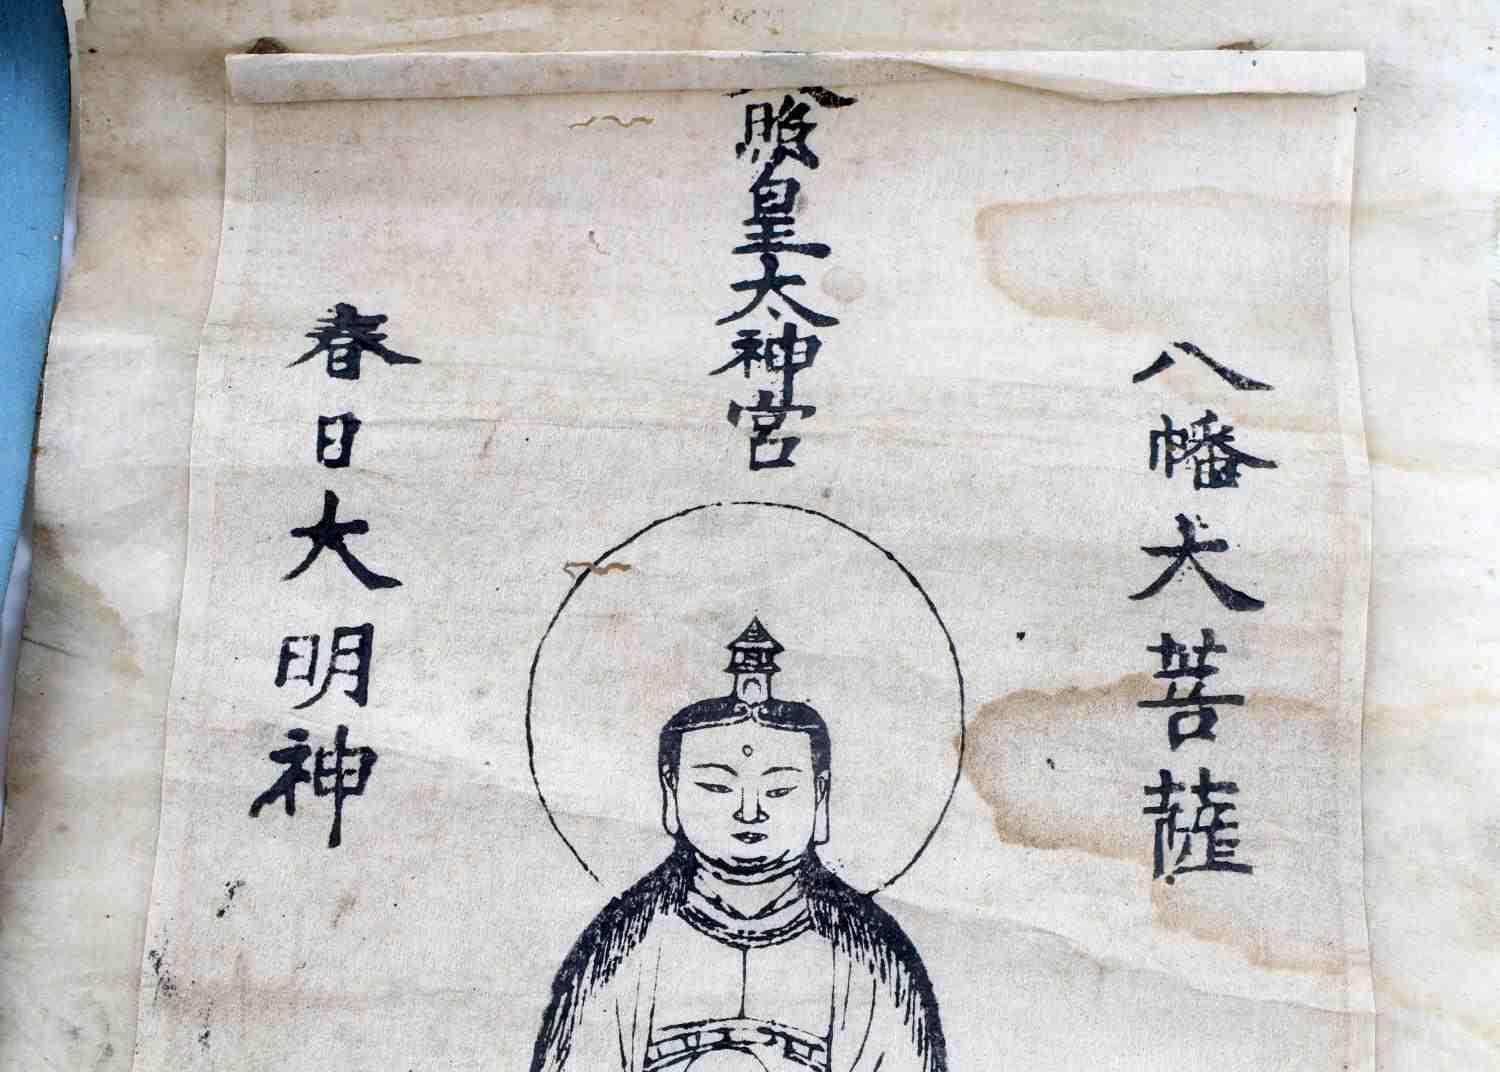 八幡大菩薩
照皇太神宮
春日大明神